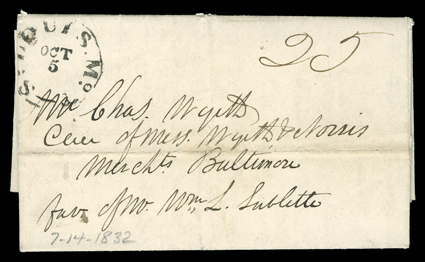 ST. LOUIS Mo.
OCT
5
25
Mr Chas. Wyeth
Care of Mess. Wyeth & Norris
Merchts. Baltimore
favr. of Mr. Wm. L. Sublette
7-14-1832